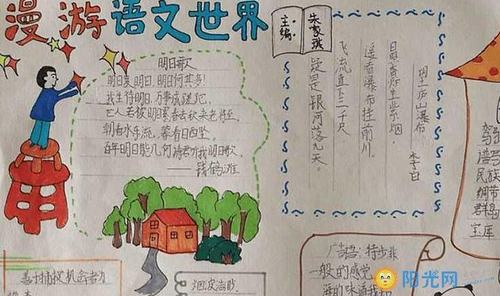 漫游语文世界
主编:
明日歌
明日复明日,明日何其多!
我生待明日,万事成蹉跎。
朝看水东流,暮看日西坠。
百年明日能几何 请君听我明日歌
——钱鹤滩
望庐山瀑布
李白
日照香炉生紫烟
遥看瀑布挂前川
飞流直下三千尺
疑是银河落九天。
广告篇:特步非
一般的感觉
民族
群岛
宝库
阳光网